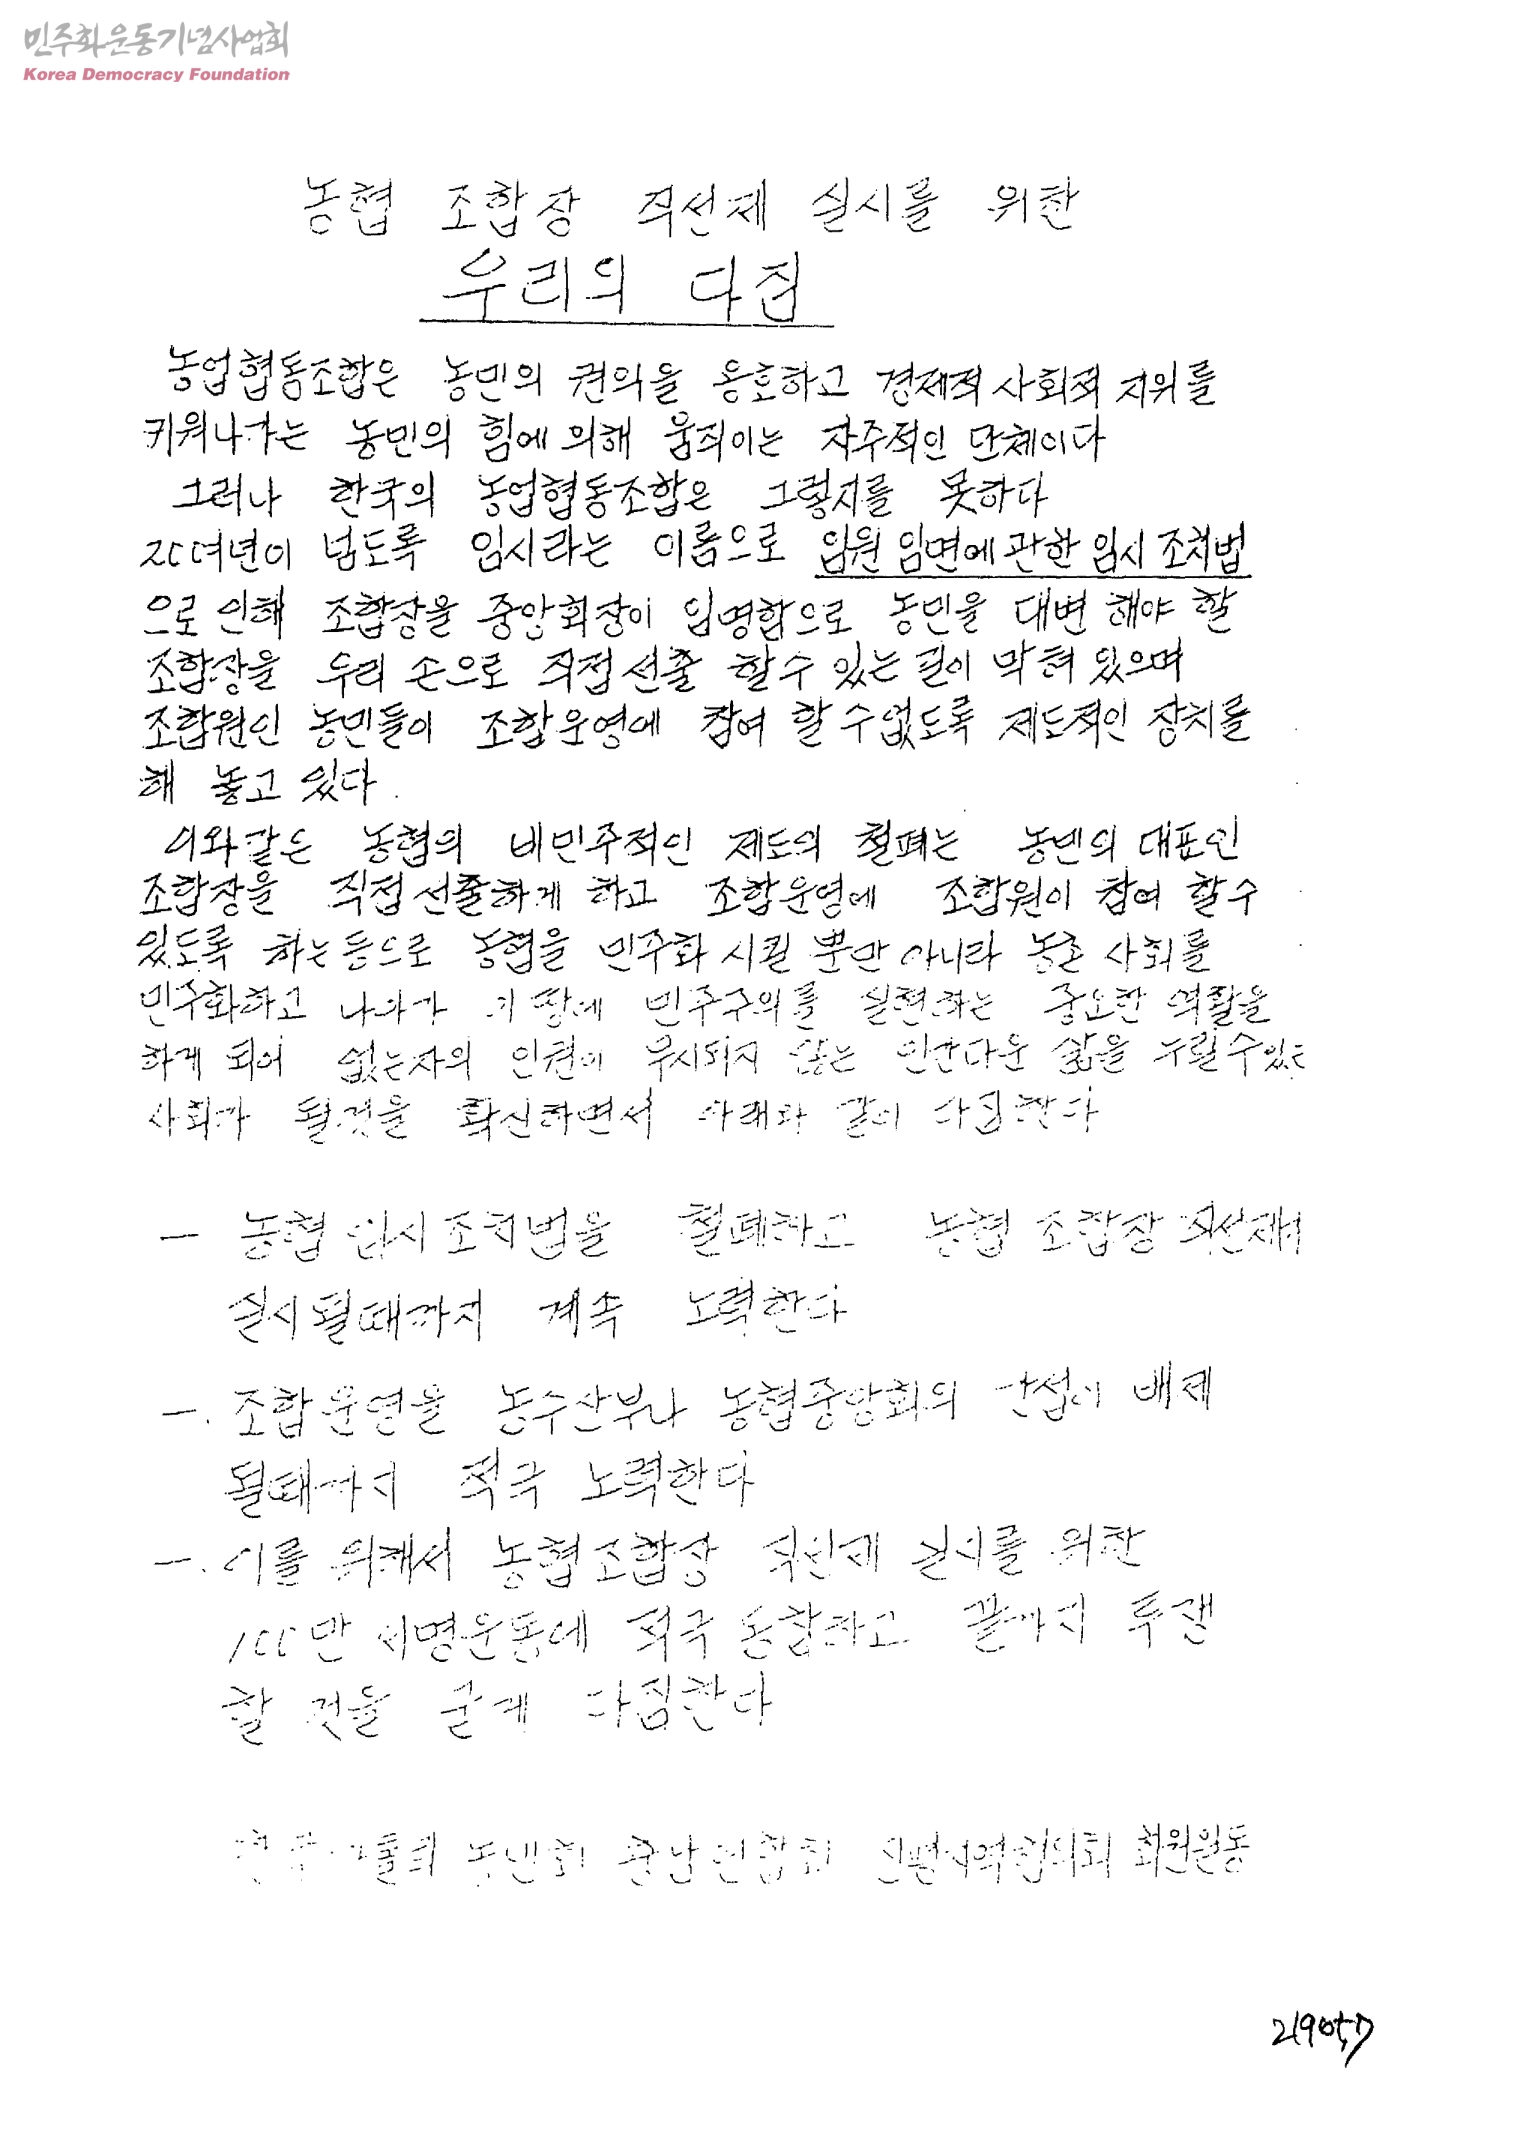 민주화운동기념사업회
Korea Democracy Foundation
농협 조합장 직선제 실시를 위한
우리의 다짐
농업협동조합은 농민의 권익을 옹호하고 경제적 사회적 지위를
키워나가는 농민의 힘에 의해 움직이는 자주적인 단체이다
그러나 한국의 농업협동조합은 그렇지를 못하다
20여년이 넘도록 임시라는 이름으로 임원 임면에 관한 임시 조치법
으로 인해 조합장을 중앙회장이 임명함으로 농민을 대변 해야 할
조합장을 우리 손으로 직접 선출 할수 있는 길이 막혀 있으며
조합원인 농민들이 조합운영에 참여 할 수 없도록 제도적인 장치를
해 놓고 있다.
이와같은 농협의 비민주적인 제도의 철폐는 농민의 대표인
조합장을 직접 선출하게 하고 조합운영에 조합원이 참여 할수
있도록 하는등으로 농협을 민주화 시킬 뿐만 아니라 농촌 사회를
민주화하고 나아가 이 땅에 민주주의를 실현하는 중요한 역활을
하게 되어 없는자의 인권이 무시되지 않는 인간다운 삶을 누릴수있는
사회가 될것을 확신하면서 아래와 같이 다짐한다
— 농협 임시조치법을 철폐하고 농협 조합장 직선제가
실시될때까지 계속 노력한다
一. 조합운영을 농수산부나 농협중앙회의 간섭이 배제
될때까지 적극 노력한다
一. 이를 위해서 농협조합장 직선제 실시를 위한
100만 서명운동에 적극 동참하고 끝까지 투쟁
할 것을 굳게 다짐한다
한국가톨릭 농민회 충남연합회 신평지역협의회 회원일동